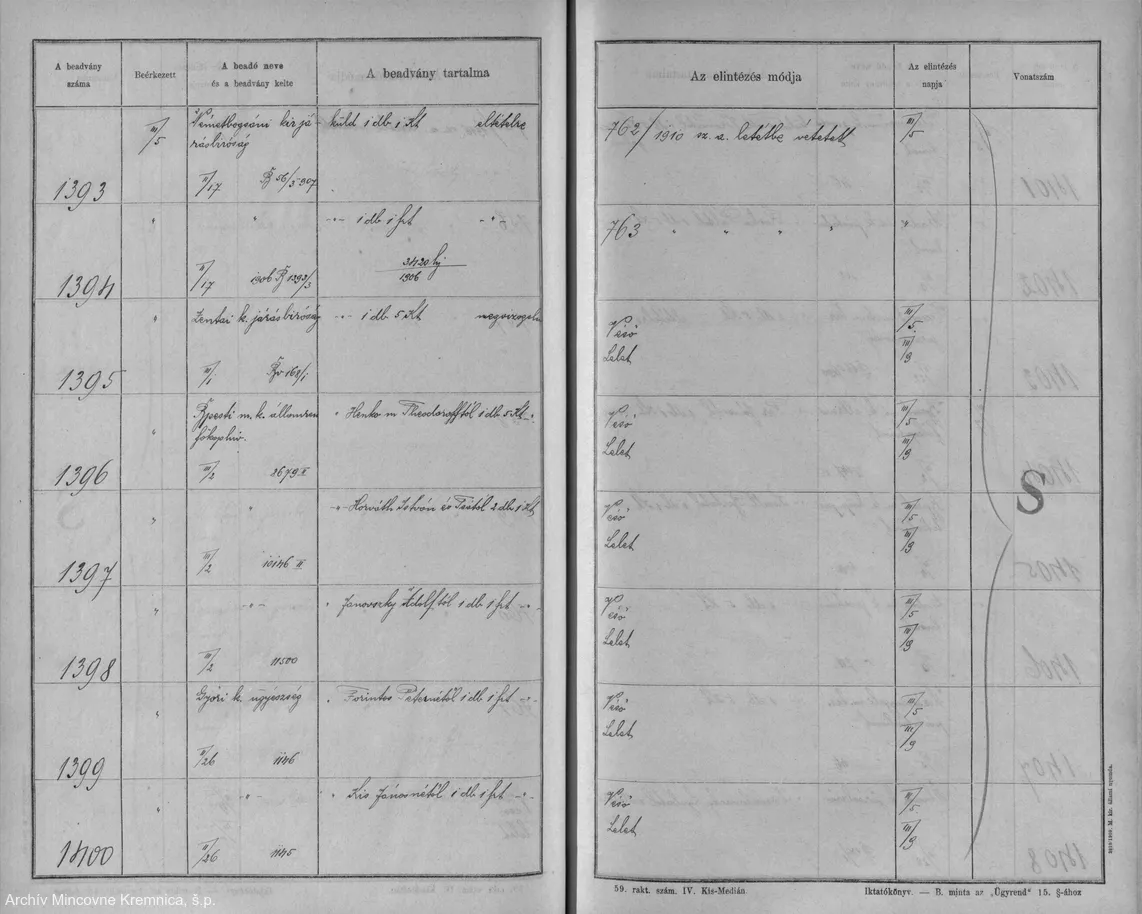 A beadvány
száma
Beérkezett
A beadó neve
és a beadvány kelte
A beadvány tartalma
Az elintézés módja
Az elintézés
napja
Vonatszám
III/5
Németbogsáni kir já-
rásbiróság
küld 1 db 1 Kt
762/1910 sz. a. letétbe vétetett
III/5
1393
II/17
" " 1 db 1 frt
763 " " " "
1394
II/17
3420
1906
Zentai k. járásbiróság
1 db 5 Kt
Véső
III/5
Lelet
III/9
1395
III/1
Bpesti m. k.
Henko m Theodorofftól 1 db 5 Kt
Véső
III/5
Lelet
III/9
1396
III/2 2679
Horváth István és 2 db 1 Kt
Véső
III/5
Lelet
III/9
1397
III/2 10146 II
Janovszky Adolftól 1 db 1 frt
Véső
III/5
Lelet
III/9
1398
III/2 11500
Győri k. ügyészség
Forintos Péternétől 1 db 1 frt
Véső
III/5
Lelet
III/9
1399
II/26 1146
Kis Jánosnétól 1 db 1 frt
Véső
III/5
Lelet
III/9
1400
II/26 1145
S
59. rakt. szám. IV. Kis-Medián
Iktatókönyv. — B. minta az „Ügyrend" 15. §-ához
Archív Mincovne Kremnica, š.p.